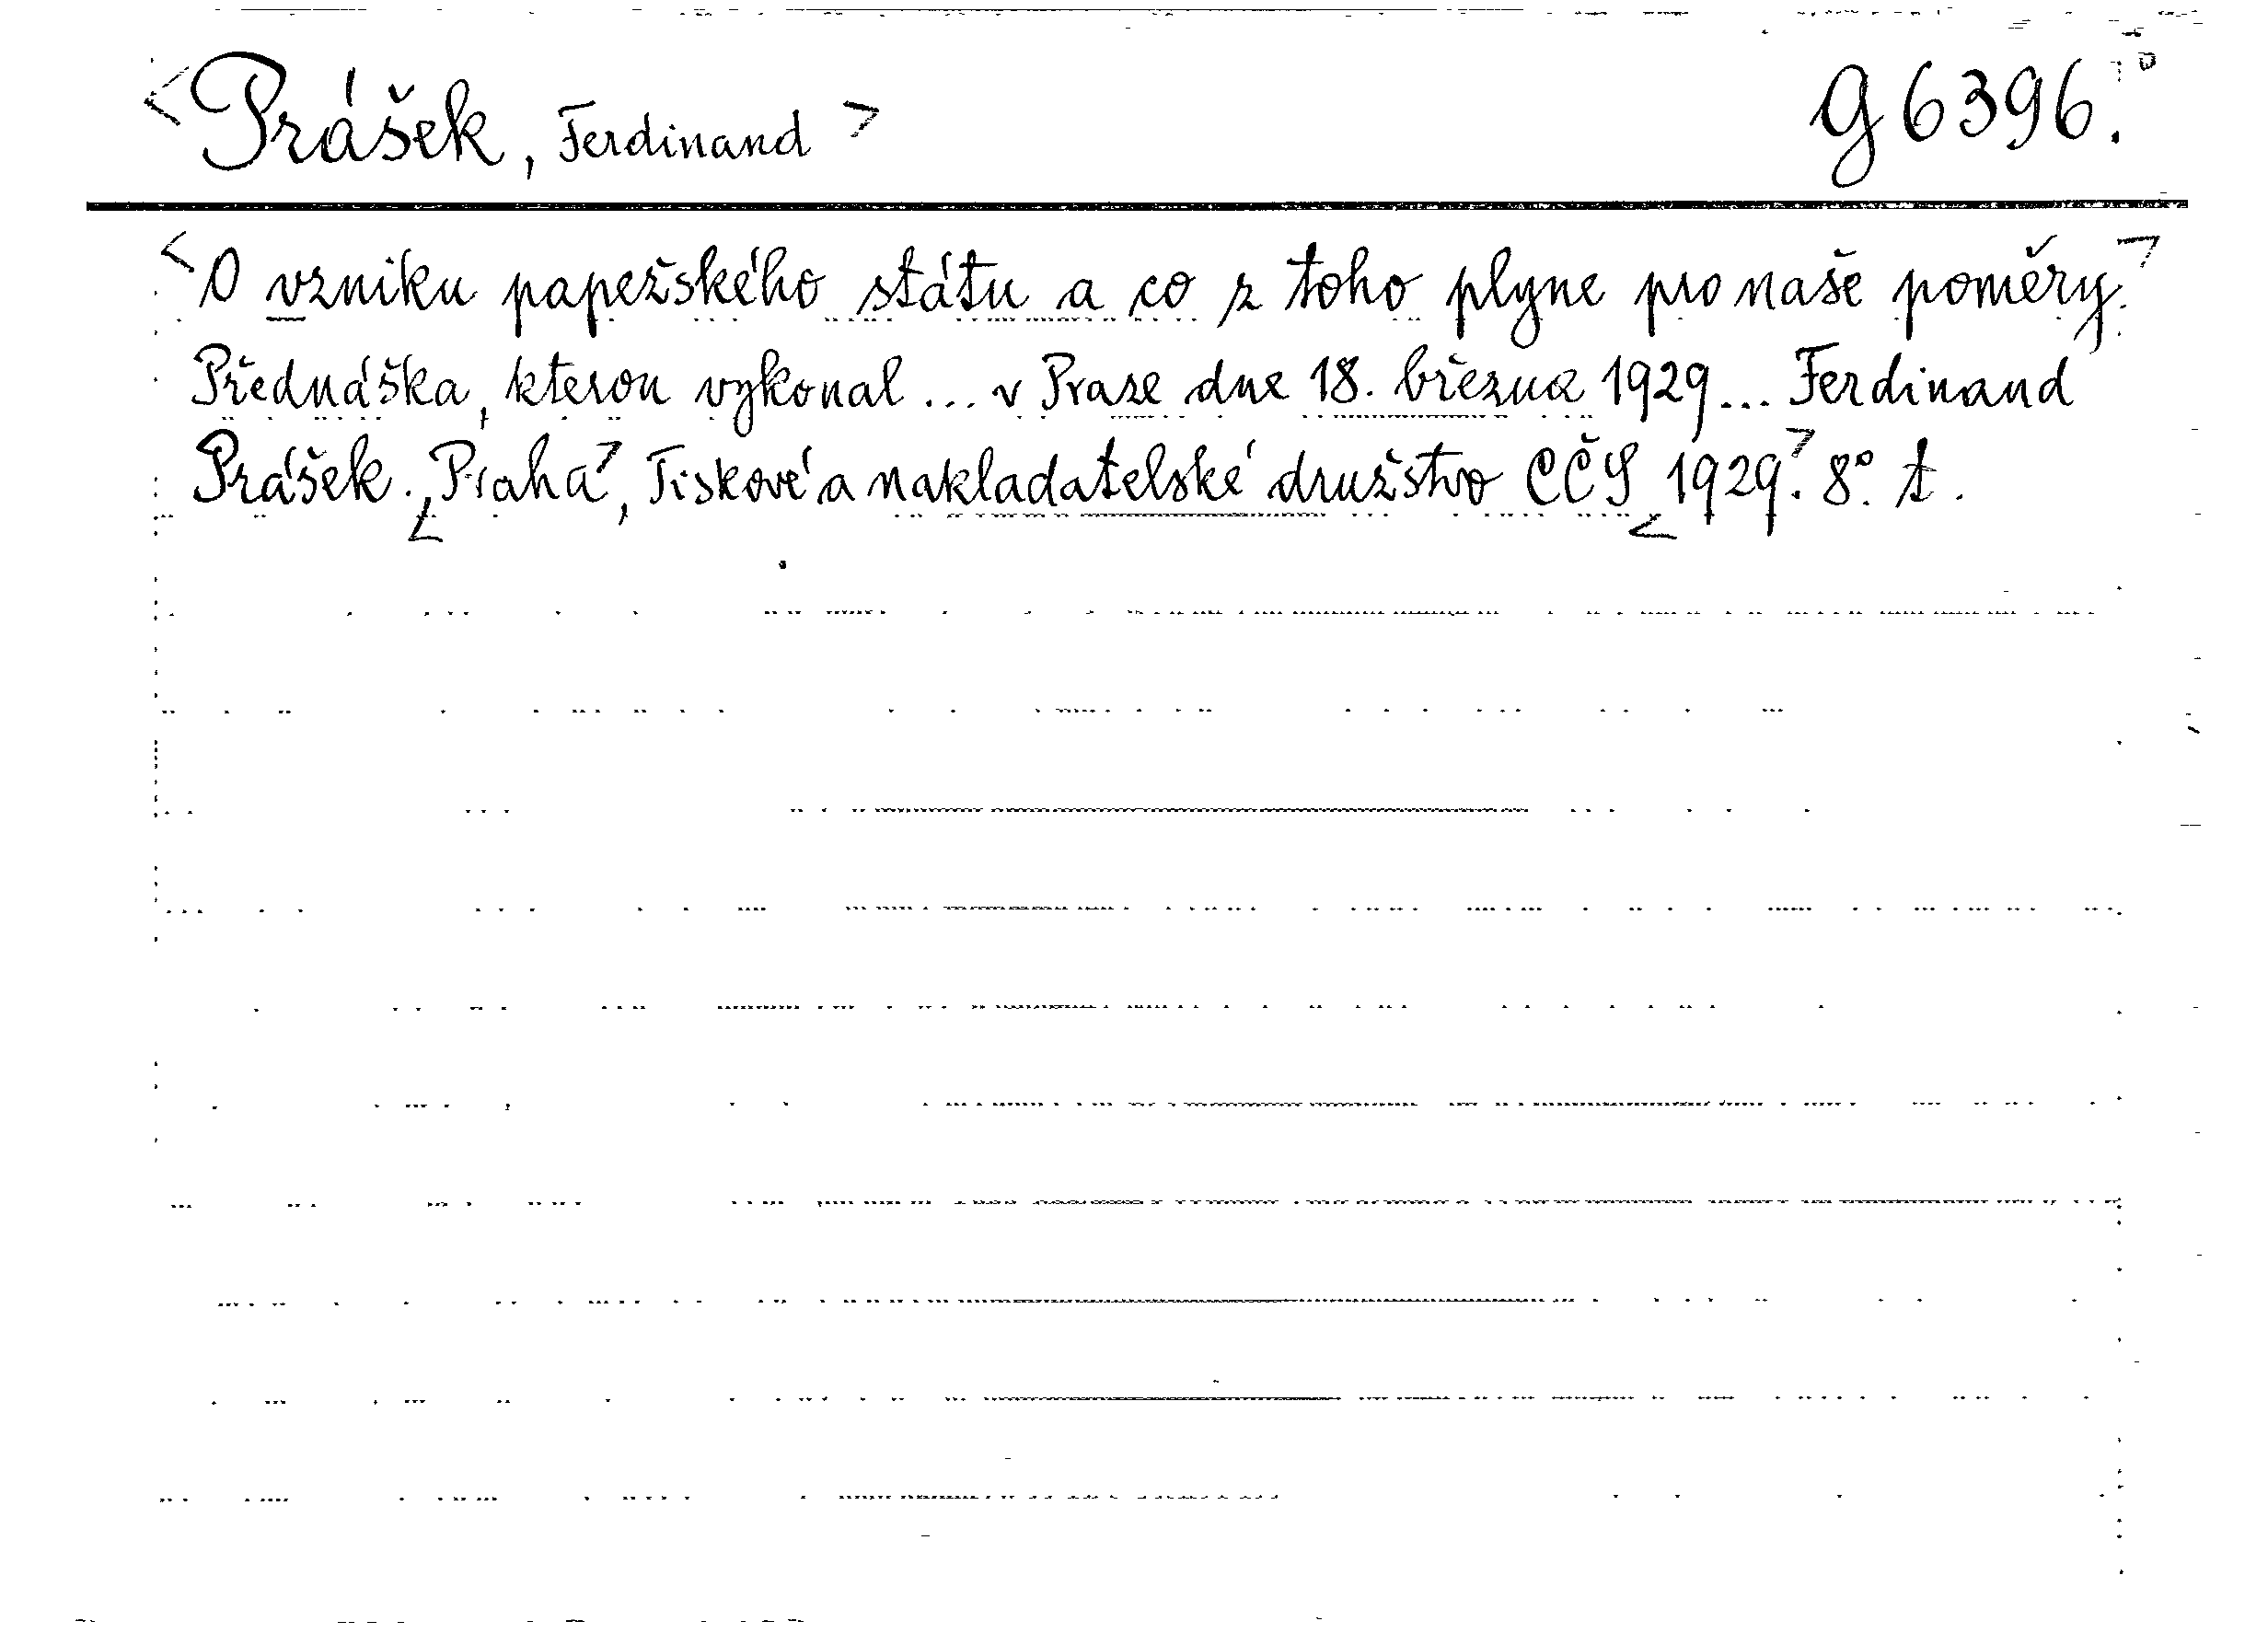 <Prášek, Ferdinand> g 6396.
<O vzniku papežského státu a co z toho plyne pro naše poměry.>
Přednáška, kterou vykonal ... v Praze dne 18. března 1929 ... Ferdinand
Prášek. <Praha>, Tiskové a nakladatelské družstvo CČS <1929>. 8°. t.